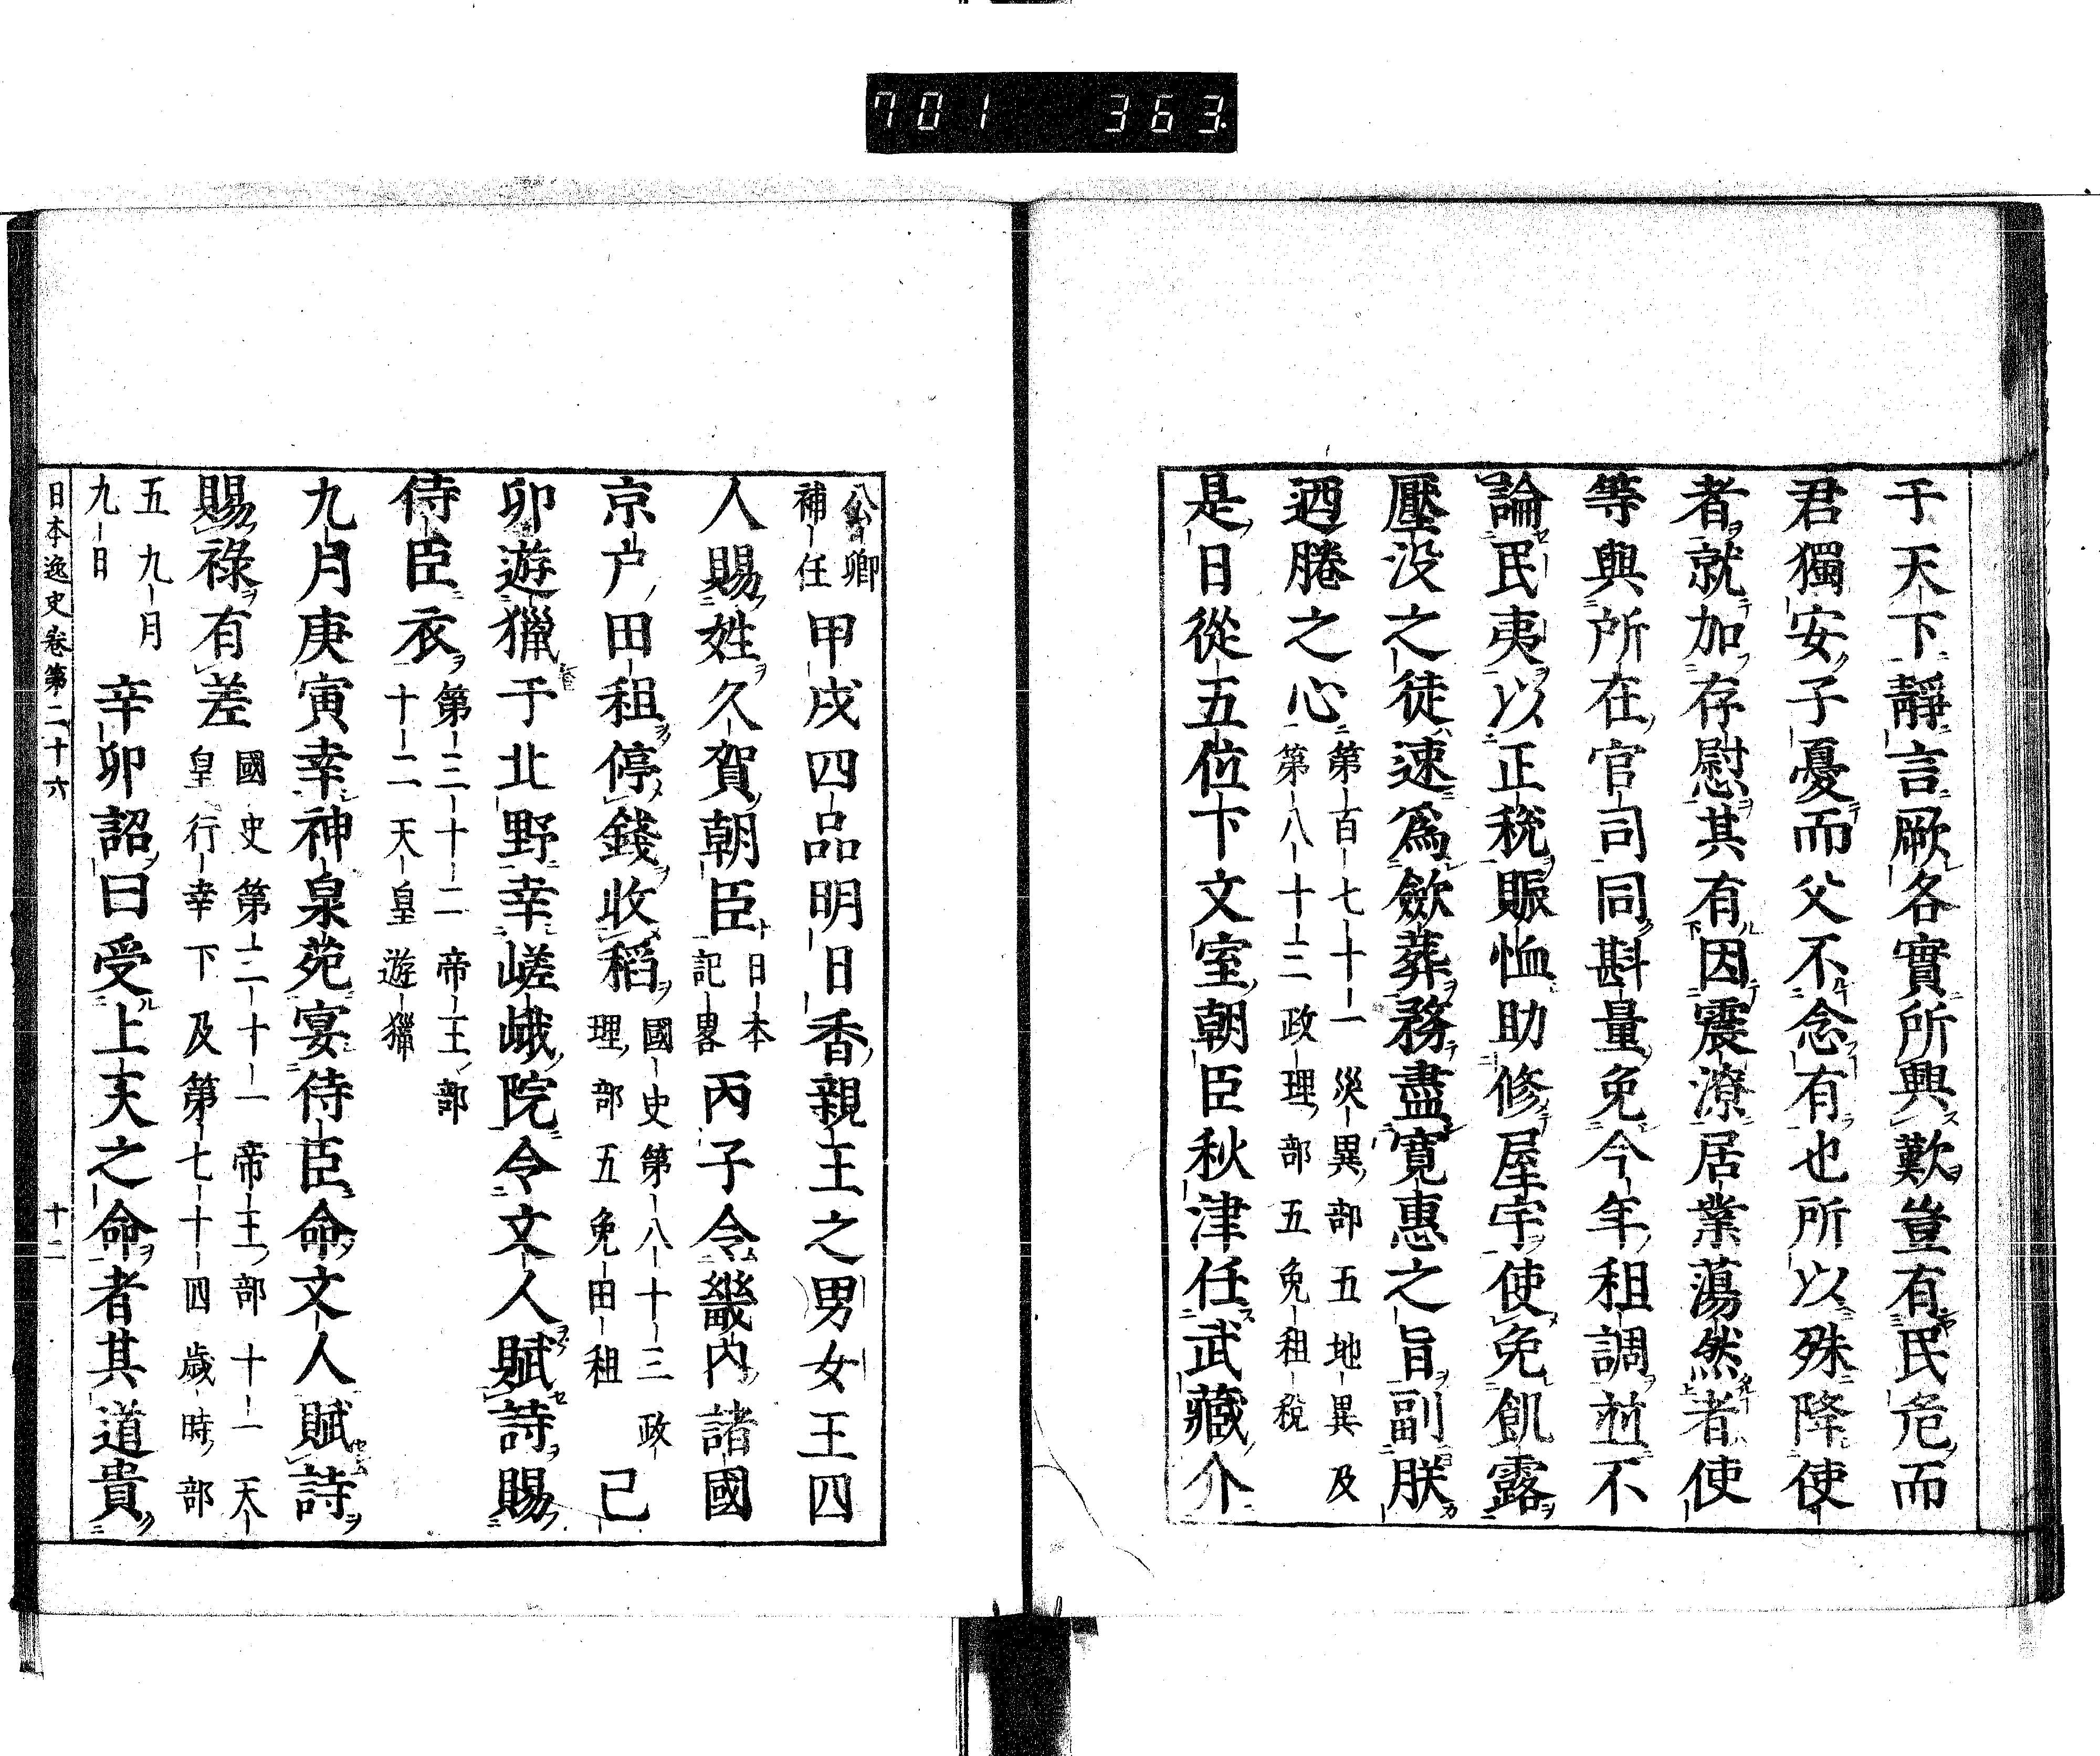 701 363
于天下靜言厥各實所興歎豈有民危而
君獨安子憂而父不念有也所以殊降使
者就加存慰其有因震潦居業蕩然者使
等與所在官司同斟量免今年租調並不
論民夷以正税賑恤助修屋宇使免飢露
壓没之徒速爲斂葬務盡寬惠之旨副朕
迺睠之心
第百七十一災異部五地異及
第八十三政理部五免租税
是日從五位下文室朝臣秋津任武藏介
公卿
補任
甲戌四品明日香親王之男女王四
人賜姓久賀朝臣
日本
記畧
丙子令畿内諸國
京戸田租停錢收稻
國史第八十三政
理部五免田租
己
卯遊獵于北野幸嵯峨院令文人賦詩賜
侍臣衣
第三十二帝王部
十二天皇遊獵
九月庚寅幸神泉苑宴侍臣命文人賦詩
賜祿有差
國史第三十一帝王部十一天
皇行幸下及第七十四歳時部
五九月
九日
辛卯詔曰受上天之命者其道貴
日本逸史卷第二十六
十二